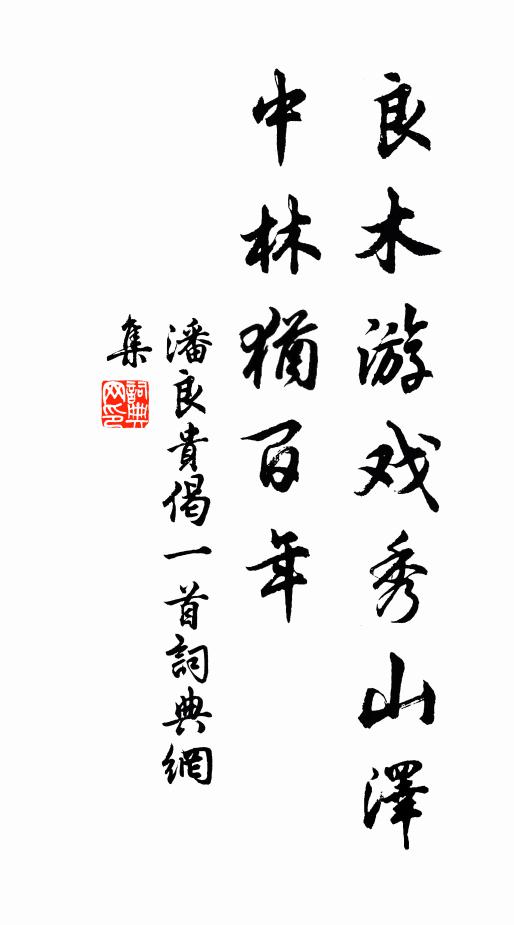 良木游戏秀山澤
中林猶百年
潘良貴偈一首詞典網
集
詞典网印